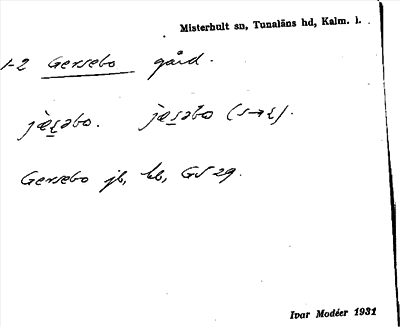 Misterhult sn, Tunaläns hd, Kalm. l.
1-2 Gersebo gård.
jæ̀ʂəbo. jæ̀səbo (s→ʂ).
Gersebo jb, kb, GS 29.
Ivar Modéer 1931